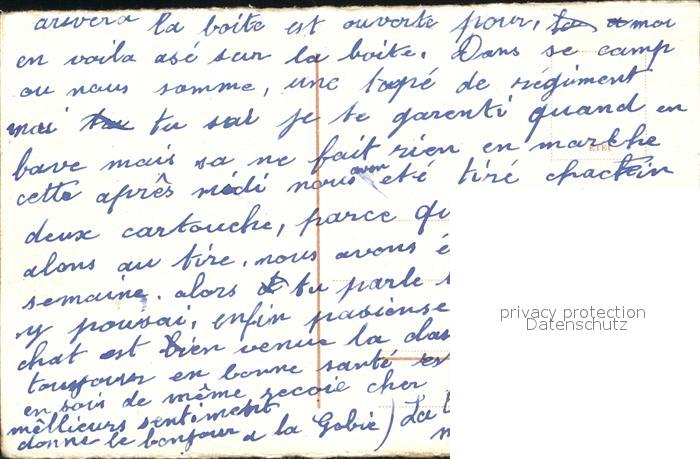 arivera la boite est ouverte pour, moi
en voila asé sur la boite. Dans se camp
ou nous somme, une tapé de régiment
mai tu sai je te garenti quand en
bave mais sa ne fait rien en marche
cette après midi nous avon eté tiré chactin
deux cartouche, parce qu
alons au tire. nous avons é
semaine. alors tu parle s
y pousai, enfin pasiense
chat est bien venue la clas
toujour en bonne santé et
en sois de même recoie cher
mêllieurs sentiment
donne le bonjour a la Gobie) La
privacy protection
Datenschutz